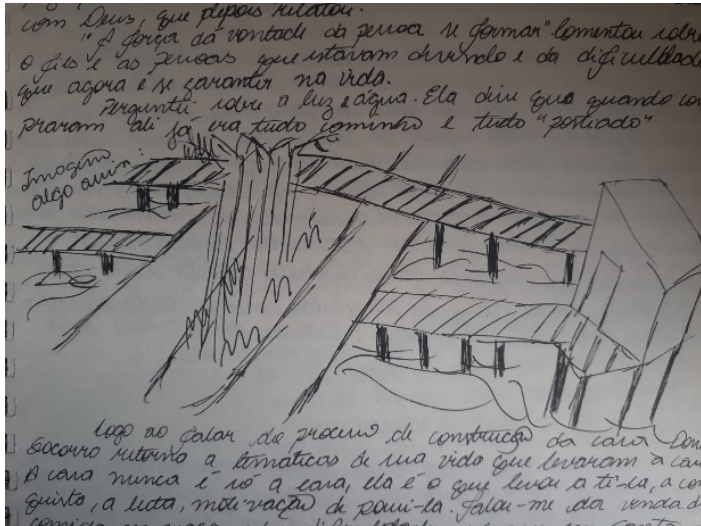 com Deus, que depois relatou.
"A força da vontade da pessoa se formar" comentou sobre
o filho e as pessoas que estavam devendo e da dificuldade
que agora é se garantir na vida.
Perguntei sobre a luz e água. Ela disse que quando com
praram ali já era tudo caminho e tudo "postiado"
Imagino
algo assim:
Logo ao falar do processo de construção da casa Dona
Socorro retorna a temáticas de sua vida que levaram à casa
A casa nunca é só a casa, ela é o que levou a tê-la, a con
quista, a luta, motivação de possuí-la. Falou-me da venda de
comida